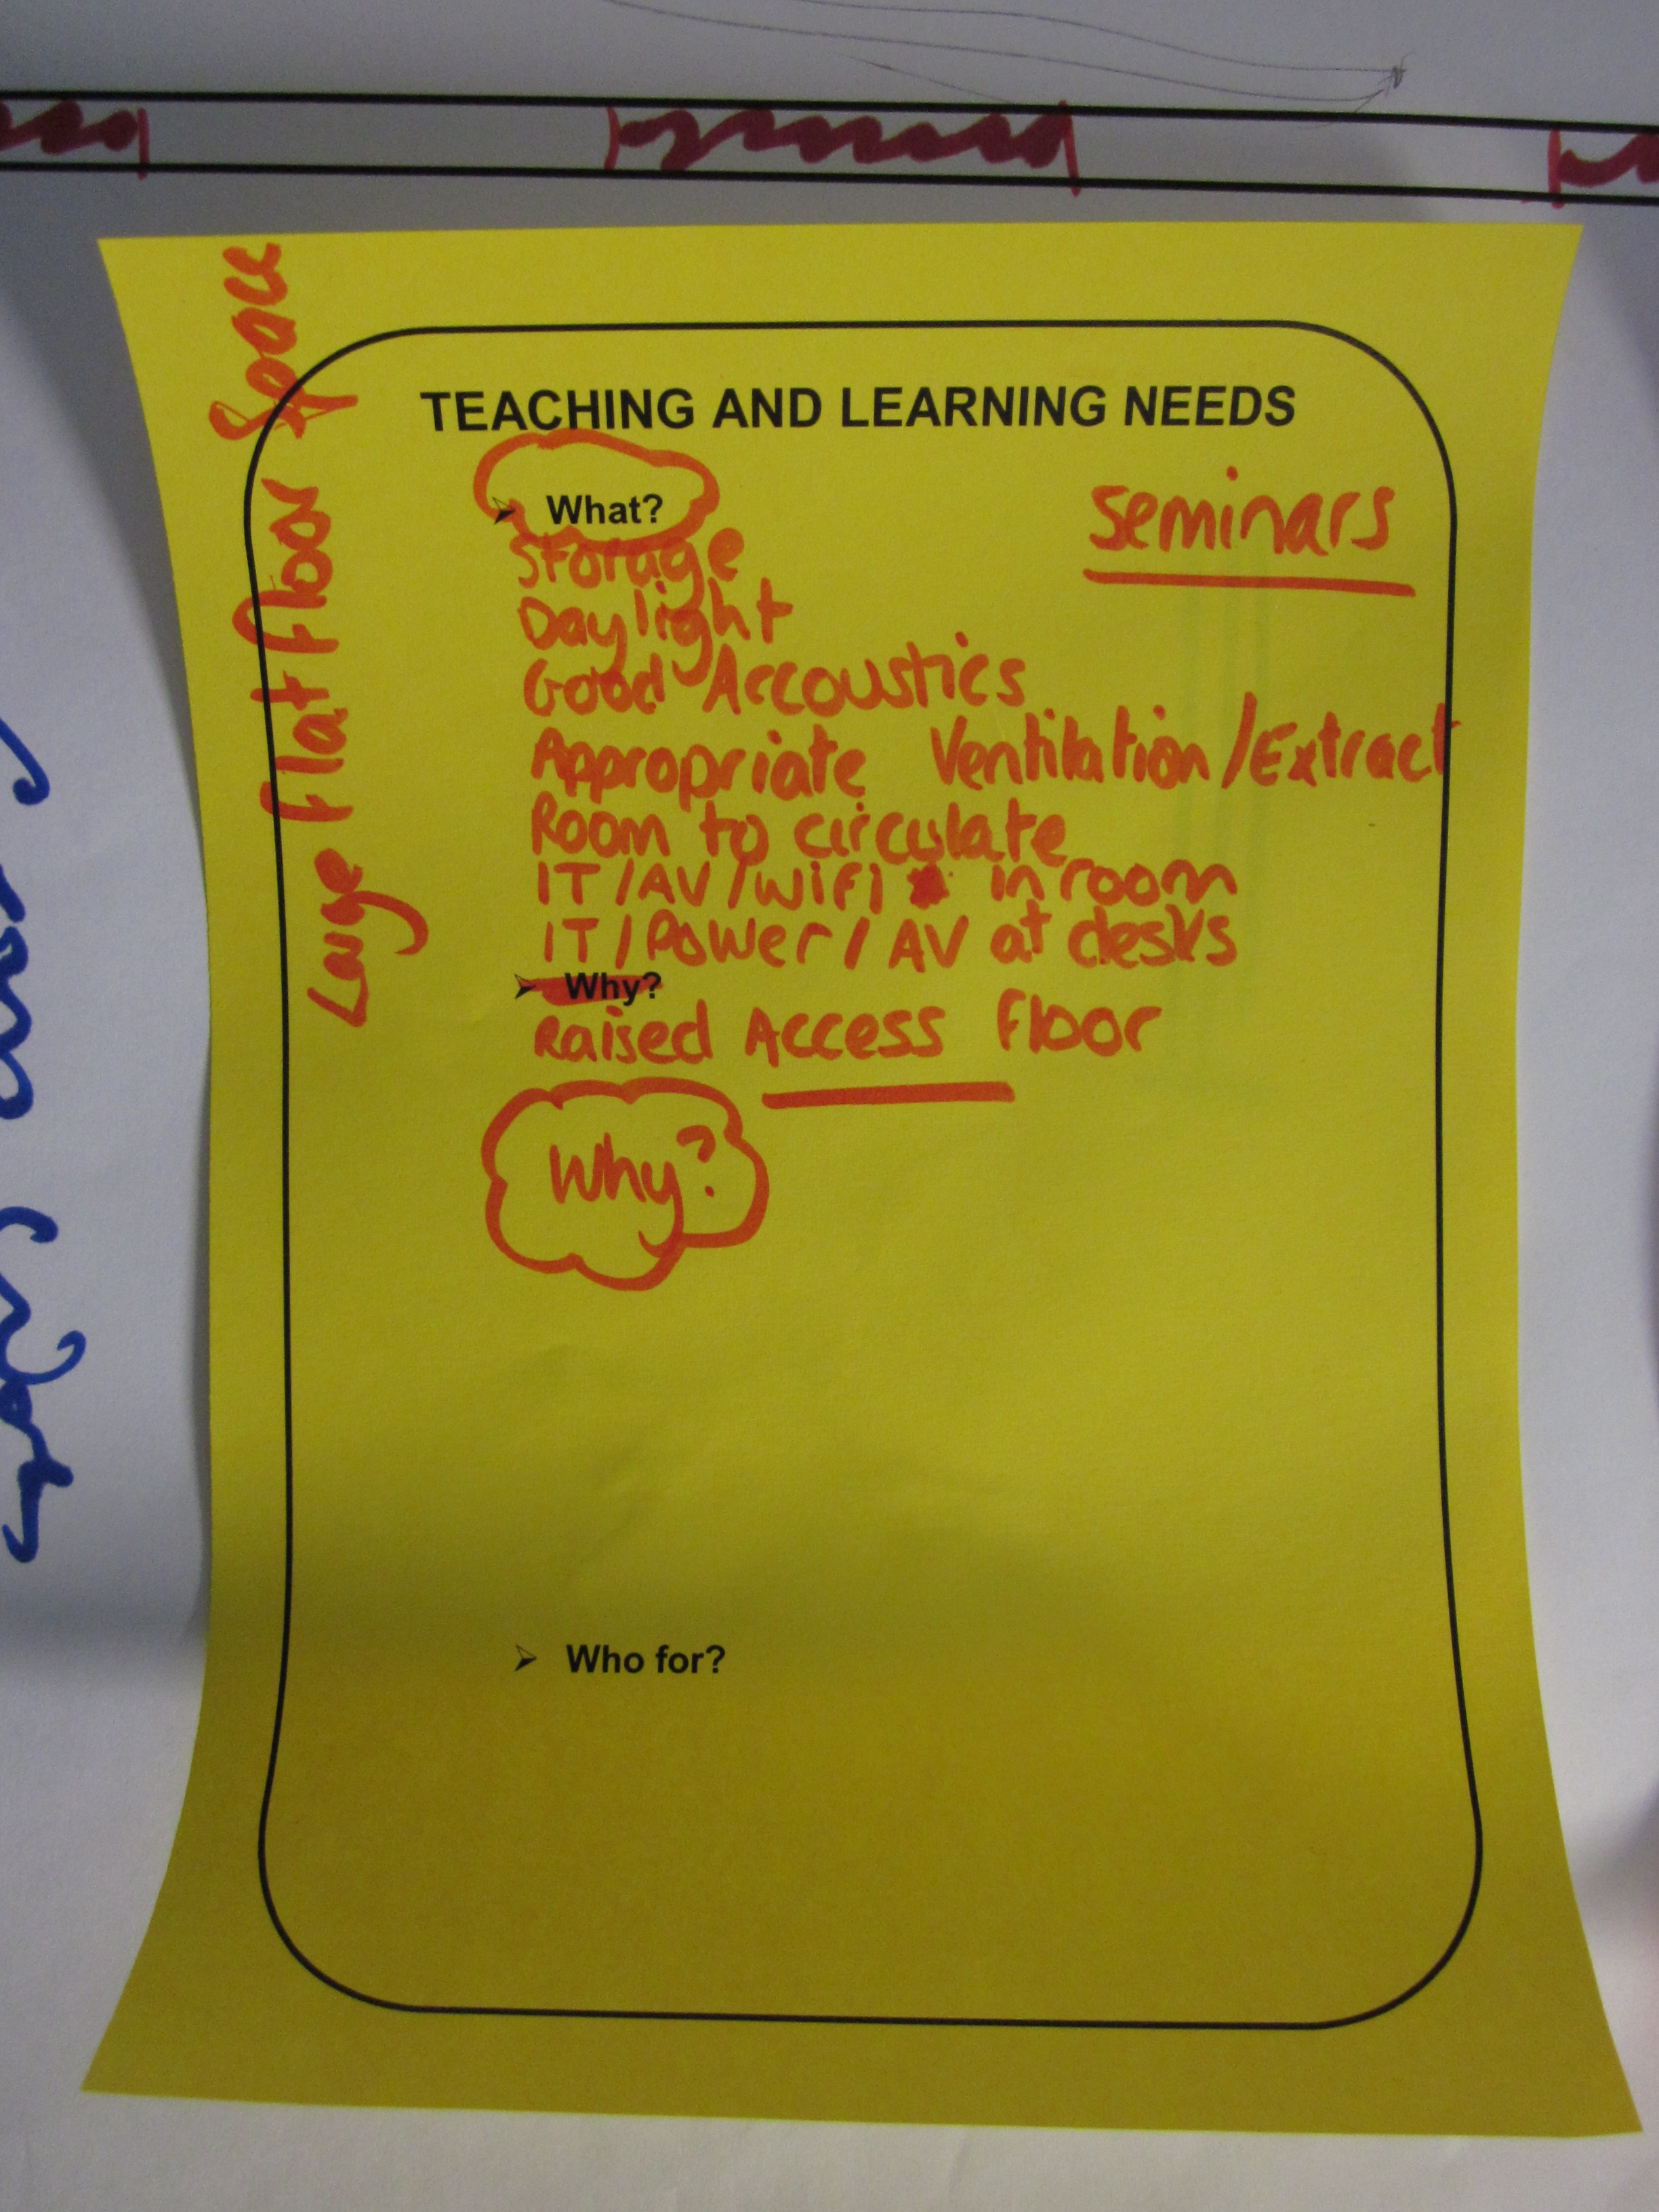 Large flat floor Space
TEACHING AND LEARNING NEEDS
What?
Seminars
Storage
Daylight
Good Accoustics
Appropriate Ventilation/Extract
Room to circulate
IT/AV/WiFi in room
IT/Power/AV at desks
Why?
Raised Access Floor
Why?
Who for?